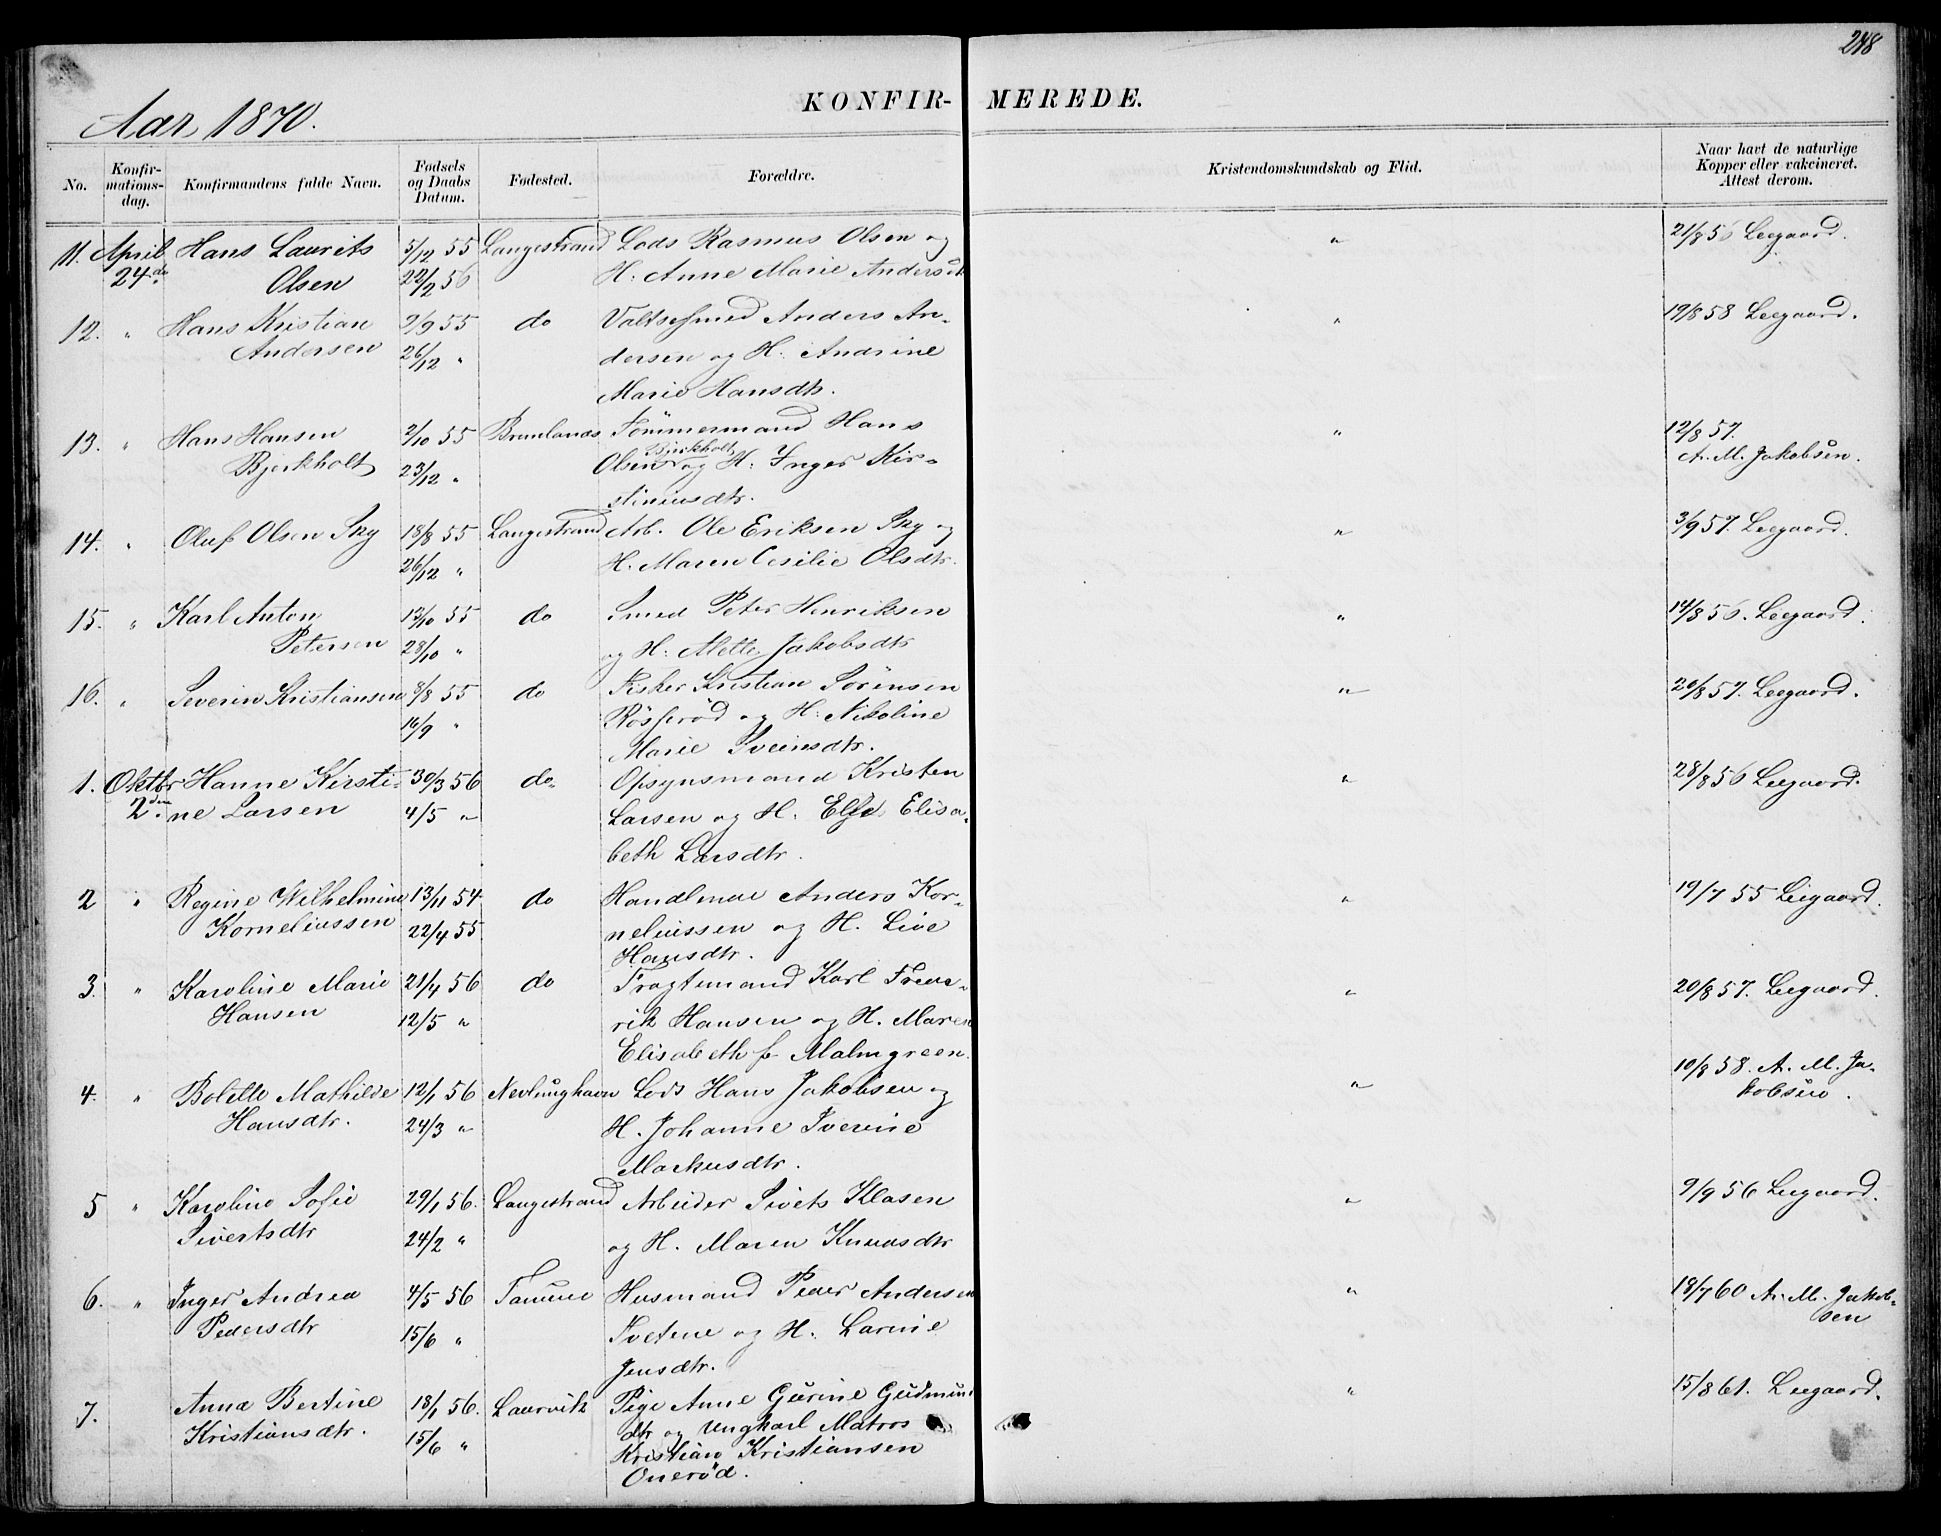 248
Aar 1870.
KONFIR- MEREDE.
No. Konfirmationsdag. Konfirmandens fulde Navn. Fødsels og Daabs Datum. Fødested. Forældre. Kristendomskundskab og Flid. Naar havt de naturlige Kopper eller vakcineret. Attest derom.
11. April Hans Laurits 5/12 55 Langestrand Lods Rasmus Olsen og " 21/8 56 Leegaard.
24de Olsen 22/2 56 H. Anne Marie Andersdt
12. " Hans Kristian 9/9 55 do Valtsesmed Anders An- " 19/8 58 Leegaard.
Andersen 26/12 " dersen og H. Andrine
Marie Hansdtr.
13. " Hans Hansen 2/10 55 Brunlanes Tömmermand Hans " 12/8 57.
Bjerkholt 23/12 " Olsen Bjerkholt og H. Inger Kir- A. M. Jakobsen.
stiniusdtr.
14. " Oluf Olsen Sky 18/8 55 Langestrand Arb. Ole Eriksen Sky og " 3/9 57. Leegaard.
26/12 " H. Maren Cesilie Olsdtr.
15. " Karl Anton 13/10 55 do Smed Peter Henriksen " 14/8 56. Leegaard.
Petersen 28/10 " og H. Mette Jakobsdtr
16. " Severin Kristiansen 8/8 55 do Fisker Kristian Sörensen " 20/8 57. Leegaard.
16/9 " Rösseröd og H. Nikoline
Marie Sveinsdtr.
1. Oktbr Hanne Kirsti- 30/3 56 do. Opsynsmand Kristen " 28/8 56 Leegaard.
2den ne Larsen 4/5 " Larsen og H. Else Elisa-
beth Larsdtr.
2 " Regine Wilhelmine 13/11 54 do Handlmœ Anders Kor- " 19/7 55 Leegaard.
Korneliussen 22/4 55. neliussen og H. Live
Hansdtr.
3. " Karoline Marie 21/4 56 do Fragtemand Karl Frede- " 20/8 57. Leegaard.
Hansen 12/5 " rik Hansen og H. Maren
Elisabeth f. Malmgreen.
4. " Bolette Mathilde 12/1 56 Nevlunghavn Lods Hans Jakobsen og " 10/8 58. A. M. Ja-
Hansdtr. 24/3 " H. Johanne Iverine kobsen.
Markusdtr.
5 " Karoline Sofie 29/1 56. Langestrand Arbeider Sivets Klasen " 9/9 56 Leegaard.
Sivertsdtr 24/2 " og H. Maren Knudsdtr
6. " Inger Andrea 4/5 56 Tanum Husmand Peder Andersen " 18/7 60 A. M. Jakob-
Pedersdtr 15/6 " Tvetene og H. Larine sen
Jensdtr.
7. Anna Bertine 18/1 56. Laurvik Pige Anne Gurine Gudmun " 15/8 61. Leegaard.
Kristiansdtr. 15/6 " dtr og Ungkarl Matros
Kristian Kristiansen
Oneröd.